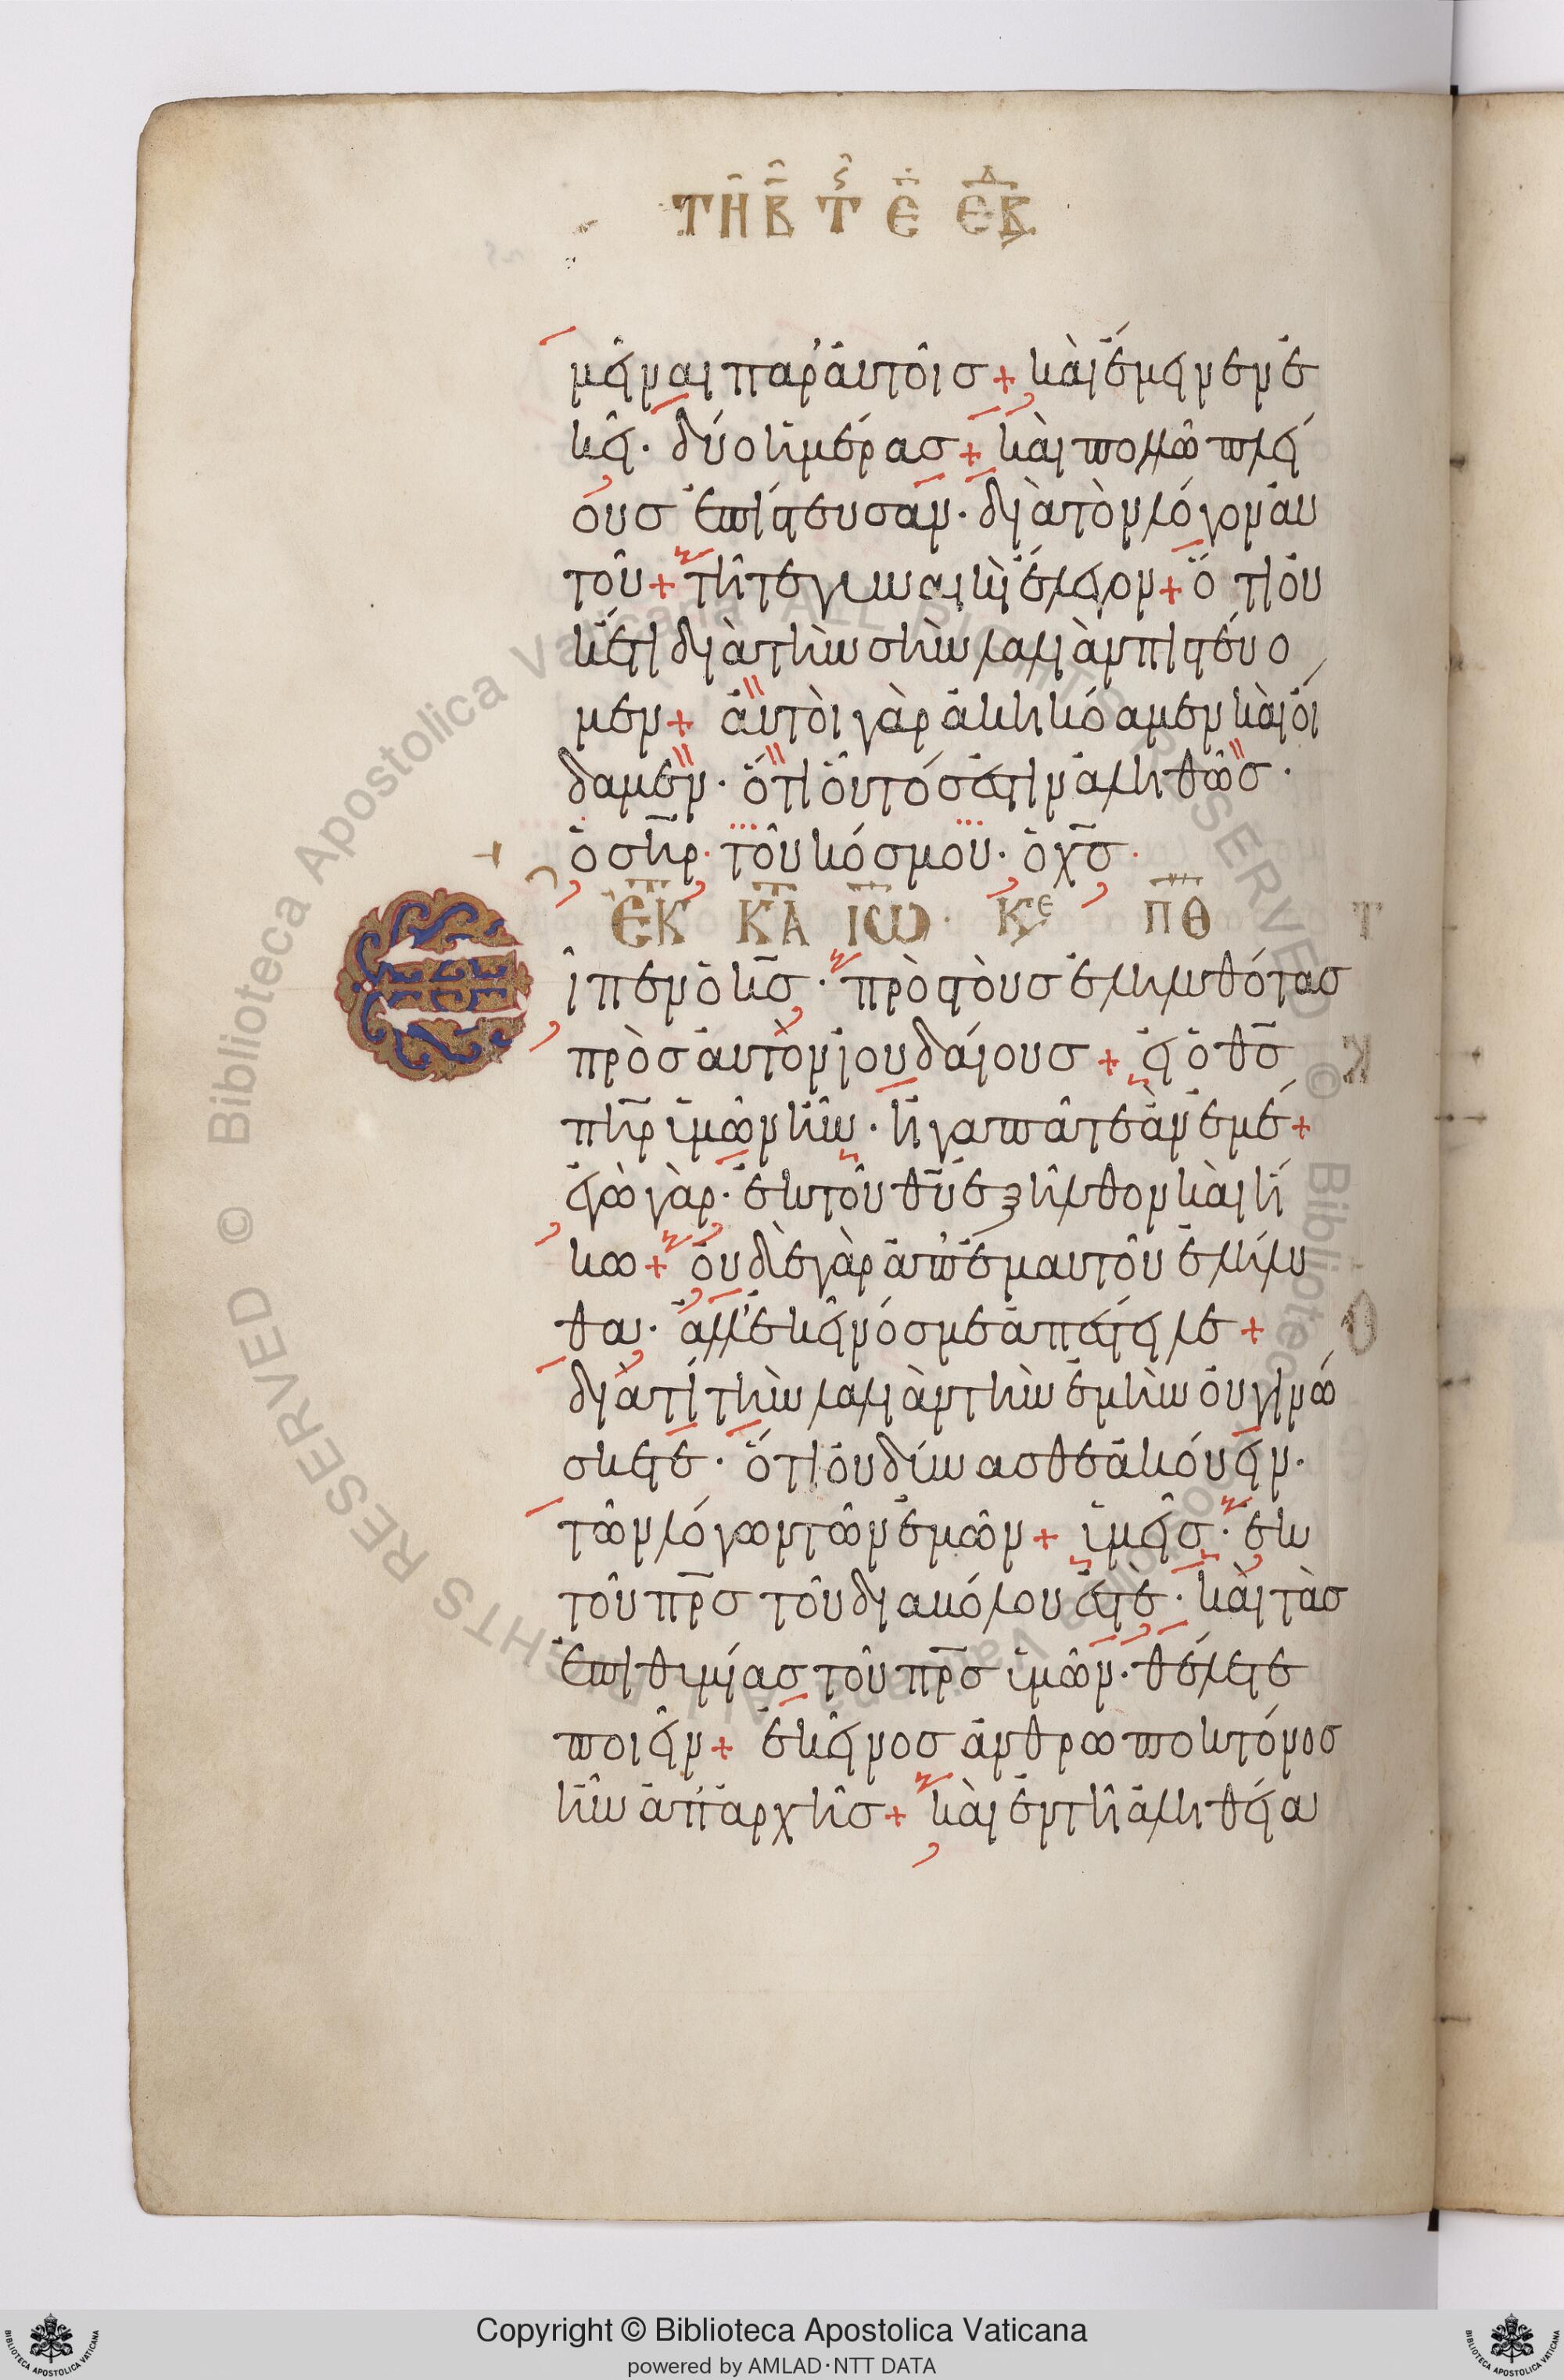 ΤΗ Β Τ Ϛ Ε ΕΒΔ
μεῖναι παρ' αὐτοῖσ + καὶ ἔμεινεν ἐ
κεῖ · δύο ἡμέρασ + καὶ πολλῶ πλεί
ουσ ἐπίστευσαν · διὰ τὸν λόγον αὐ
τοῦ + τῆ τε γυναικὶ ἔλεγον + ὅ τι οὐ
κέτι διὰ τὴν σὴν λαλιὰν πιστεύο
μεν + αὐτοὶ γὰρ ἀκηκόαμεν καὶ οἴ
δαμεν · ὅτι οὗτόσ ἐστιν ἀληθῶσ ·
ὁ σ̅η̅ρ · τοῦ κόσμου · ὁ χ̅σ ·
ἘΚ Κ̅Α ΙΩ · Κε ΠΘ
ἶπεν ὁ κ̅σ · πρὸσ τοὺσ ἐληλυθότασ
πρὸσ αὐτὸν ἰουδαίουσ + εἰ ὁ θ̅σ
π̅η̅ρ ὑμῶν ἦν · ἠγαπᾶτε ἂν ἐμέ +
ἐγὼ γὰρ · ἐκ τοῦ θ̅υ ἐξῆλθον καὶ ἥ
κω + οὐδὲ γὰρ ἀπ' ἐμαυτοῦ ἐλήλυ
θα · ἀλλ' ἐκεῖνόσ με ἀπέστειλε +
διὰ τί τὴν λαλιὰν τὴν ἐμὴν οὐ γινώ
σκετε · ὅτι οὐ δύνασθε ἀκούειν ·
τῶν λόγων τῶν ἐμῶν + ὑμεῖσ · ἐκ
τοῦ π̅ρ̅σ τοῦ διαβόλου ἐστὲ · καὶ τὰσ
ἐπιθυμίασ τοῦ π̅ρ̅σ ὑμῶν · θέλετε
ποιεῖν + ἐκεῖνοσ ἀνθρωποκτόνοσ
ἦν ἀπ' ἀρχῆσ + καὶ ἐν τῆ ἀληθεία
Copyright © Biblioteca Apostolica Vaticana
powered by AMLAD·NTT DATA